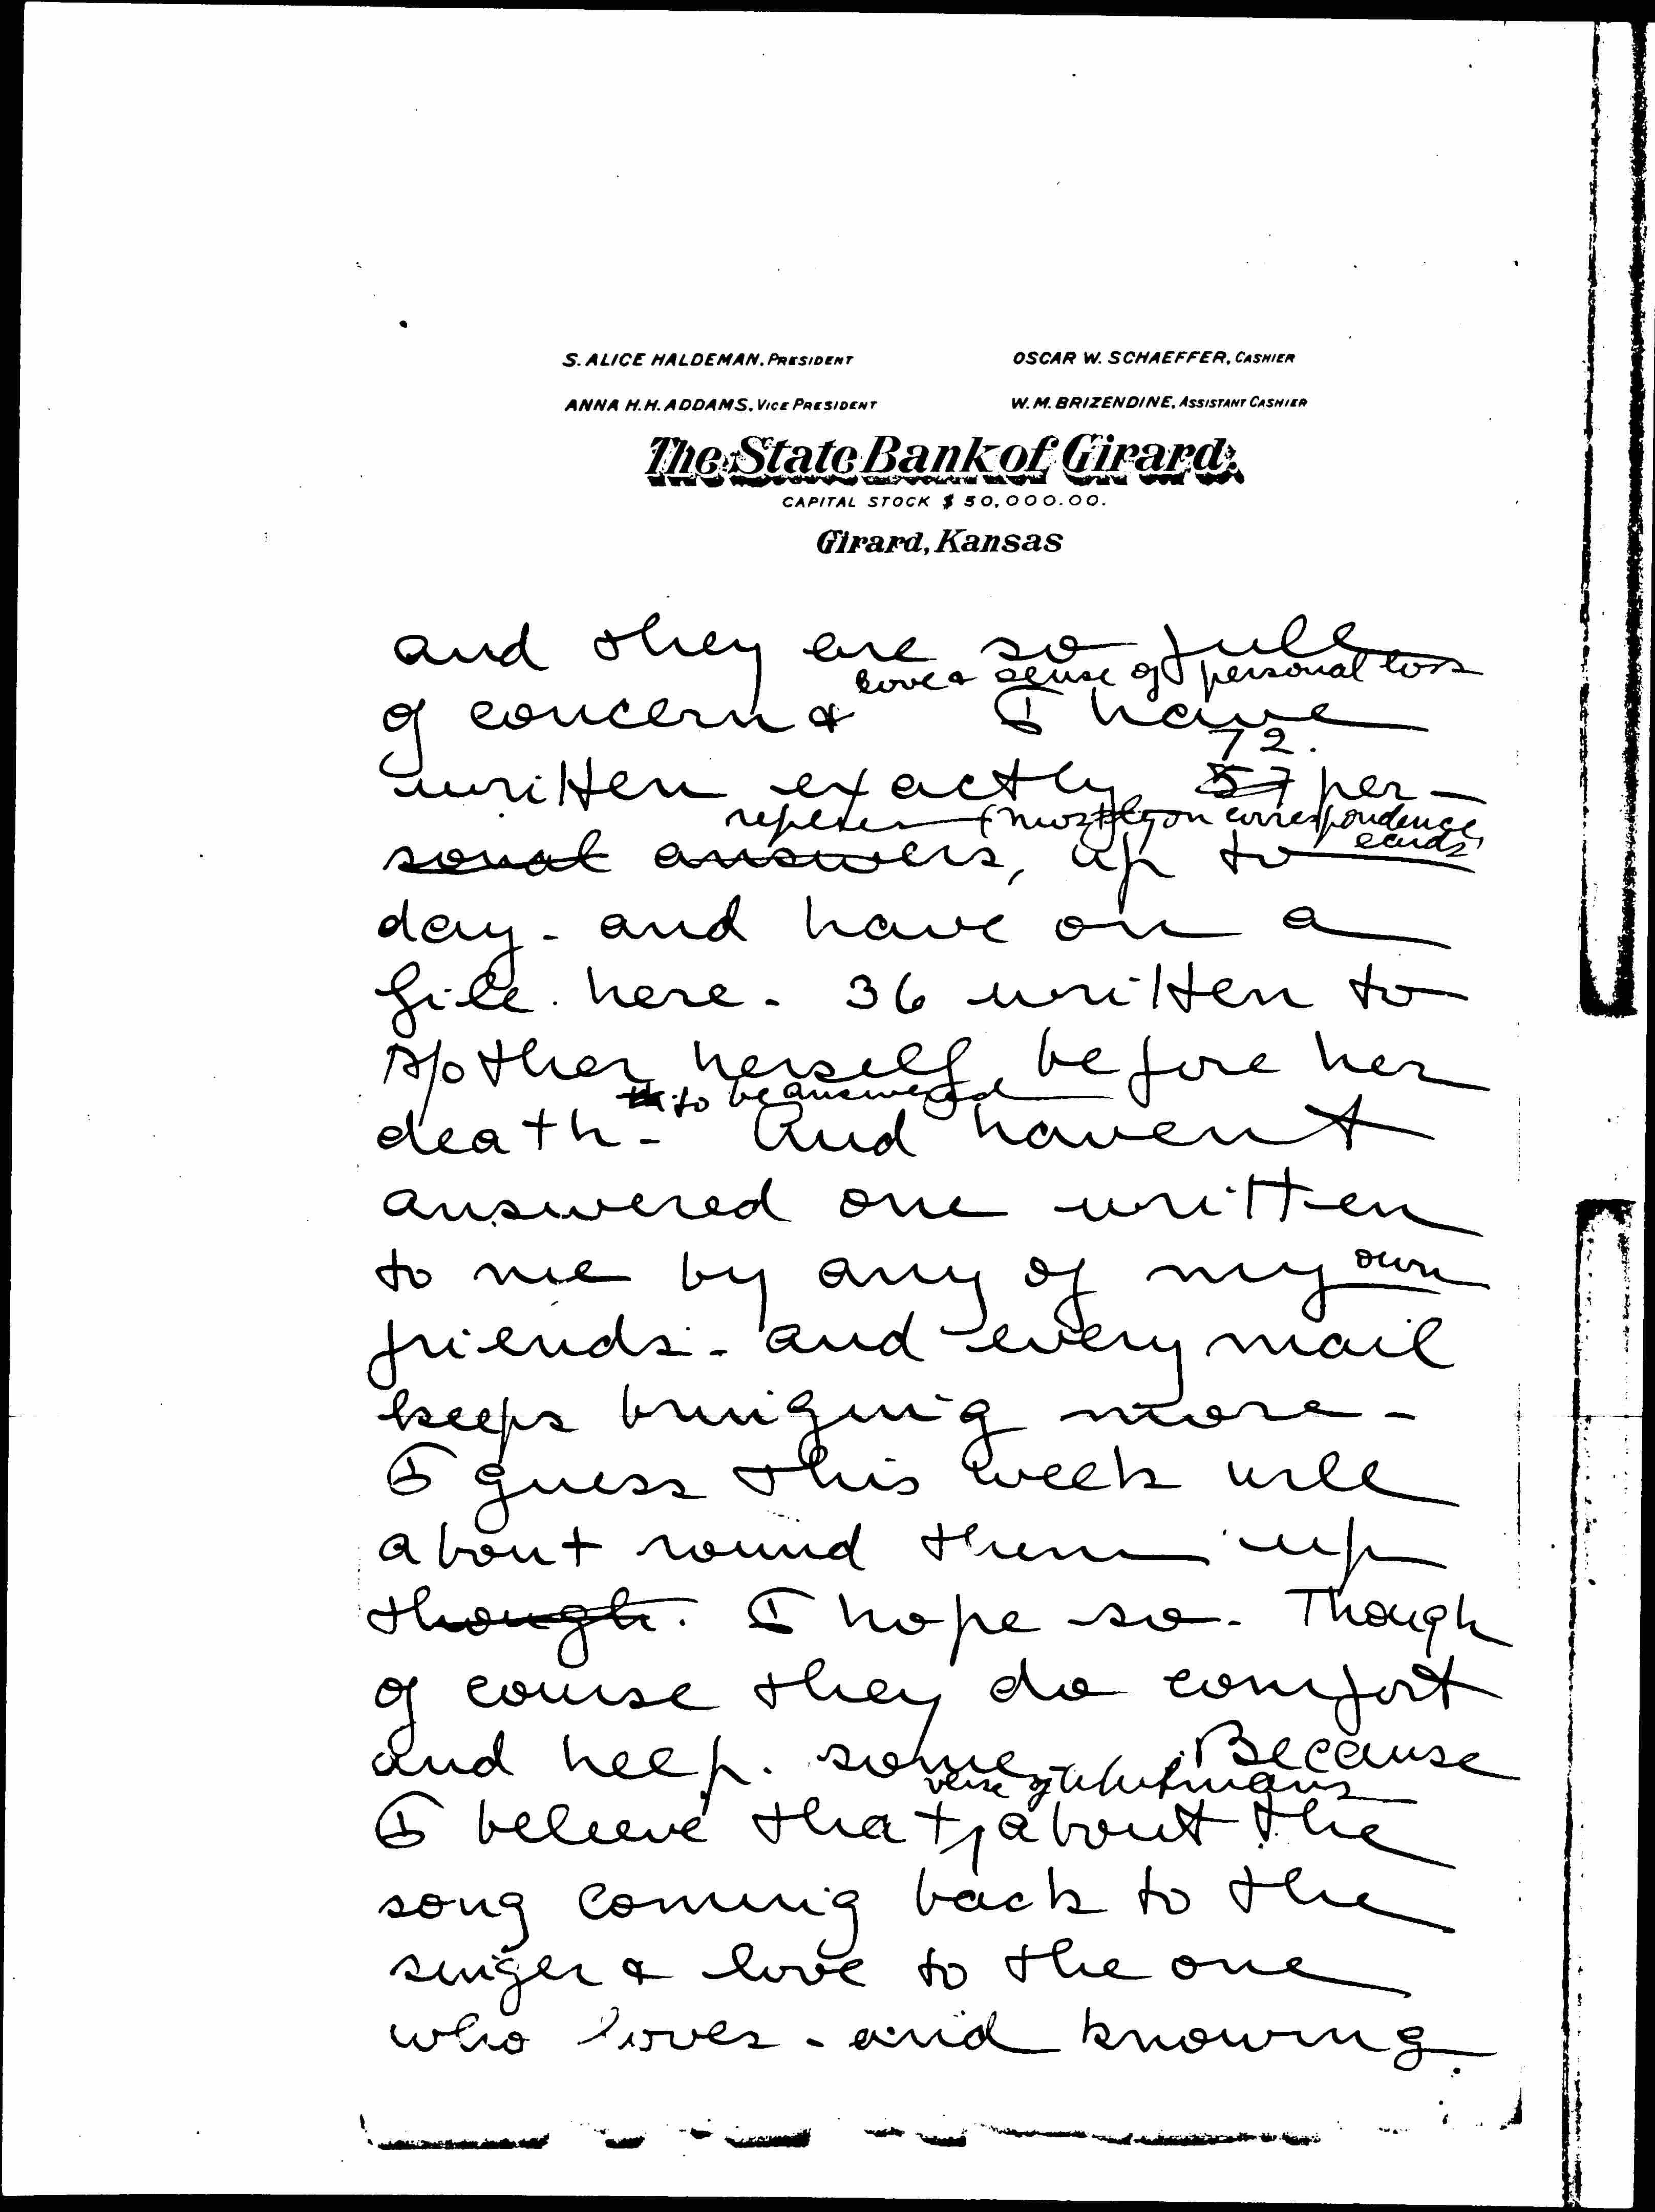 S. ALICE HALDEMAN, PRESIDENT
OSCAR W. SCHAEFFER, CASHIER
ANNA H.H. ADDAMS, VICE PRESIDENT
W.M. BRIZENDINE, ASSISTANT CASHIER
The State Bank of Girard.
CAPITAL STOCK $ 50,000.00.
Girard, Kansas
and they are so full
love & sense of personal loss
of concern & I have
72.
written exactly 57 per-
replies (mostly on correspondence
cards)
sonal answers, up to
day - and have on a
file. here - 36 written to
Mother herself before her
to be answered
death - And havent
answered one written
to me by any of my own
friends - and every mail
keeps bringing more -
I guess this week will
about round them up
though. I hope so. Though
of course they do comfort
and help. some - Because
verse of Whitmans
I believe that, about the
song coming back to the
singer & love to the one
who loves - and knowing